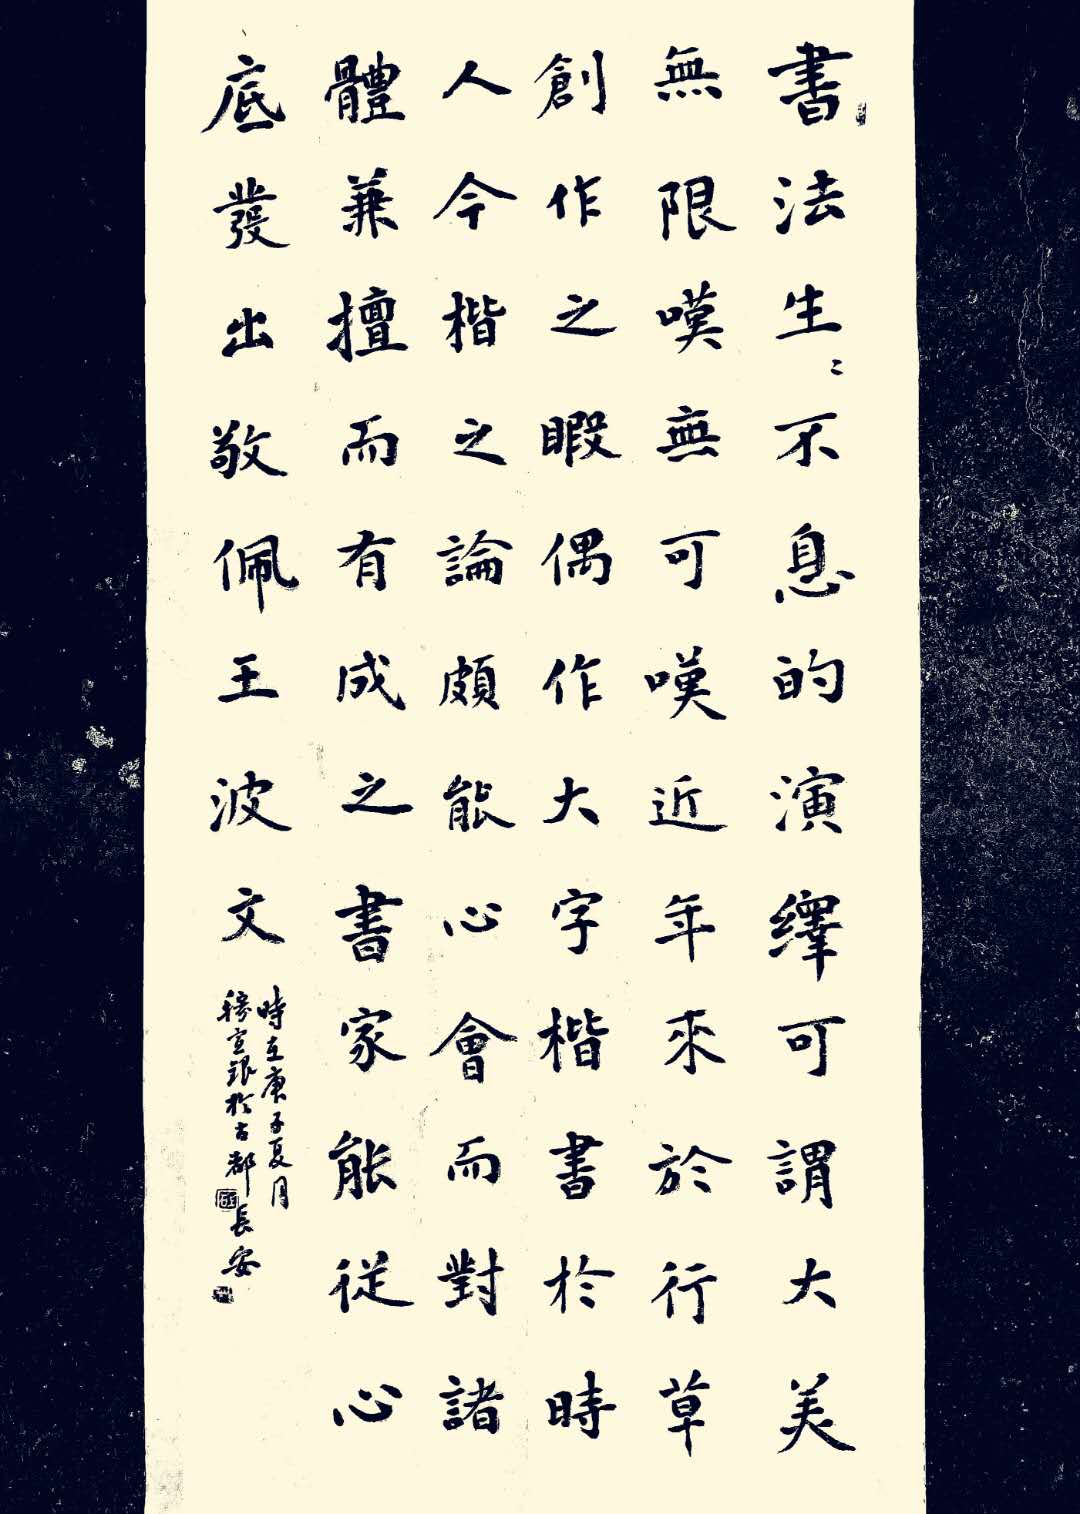 書法生〻不息的演繹可謂大美
無限嘆無可嘆近年來於行草
創作之暇偶作大字楷書於時
人今楷之論頗能心會而對諸
體兼擅而有成之書家能從心
底發出敬佩王波文
時在庚子夏月
宣銀於古都長安